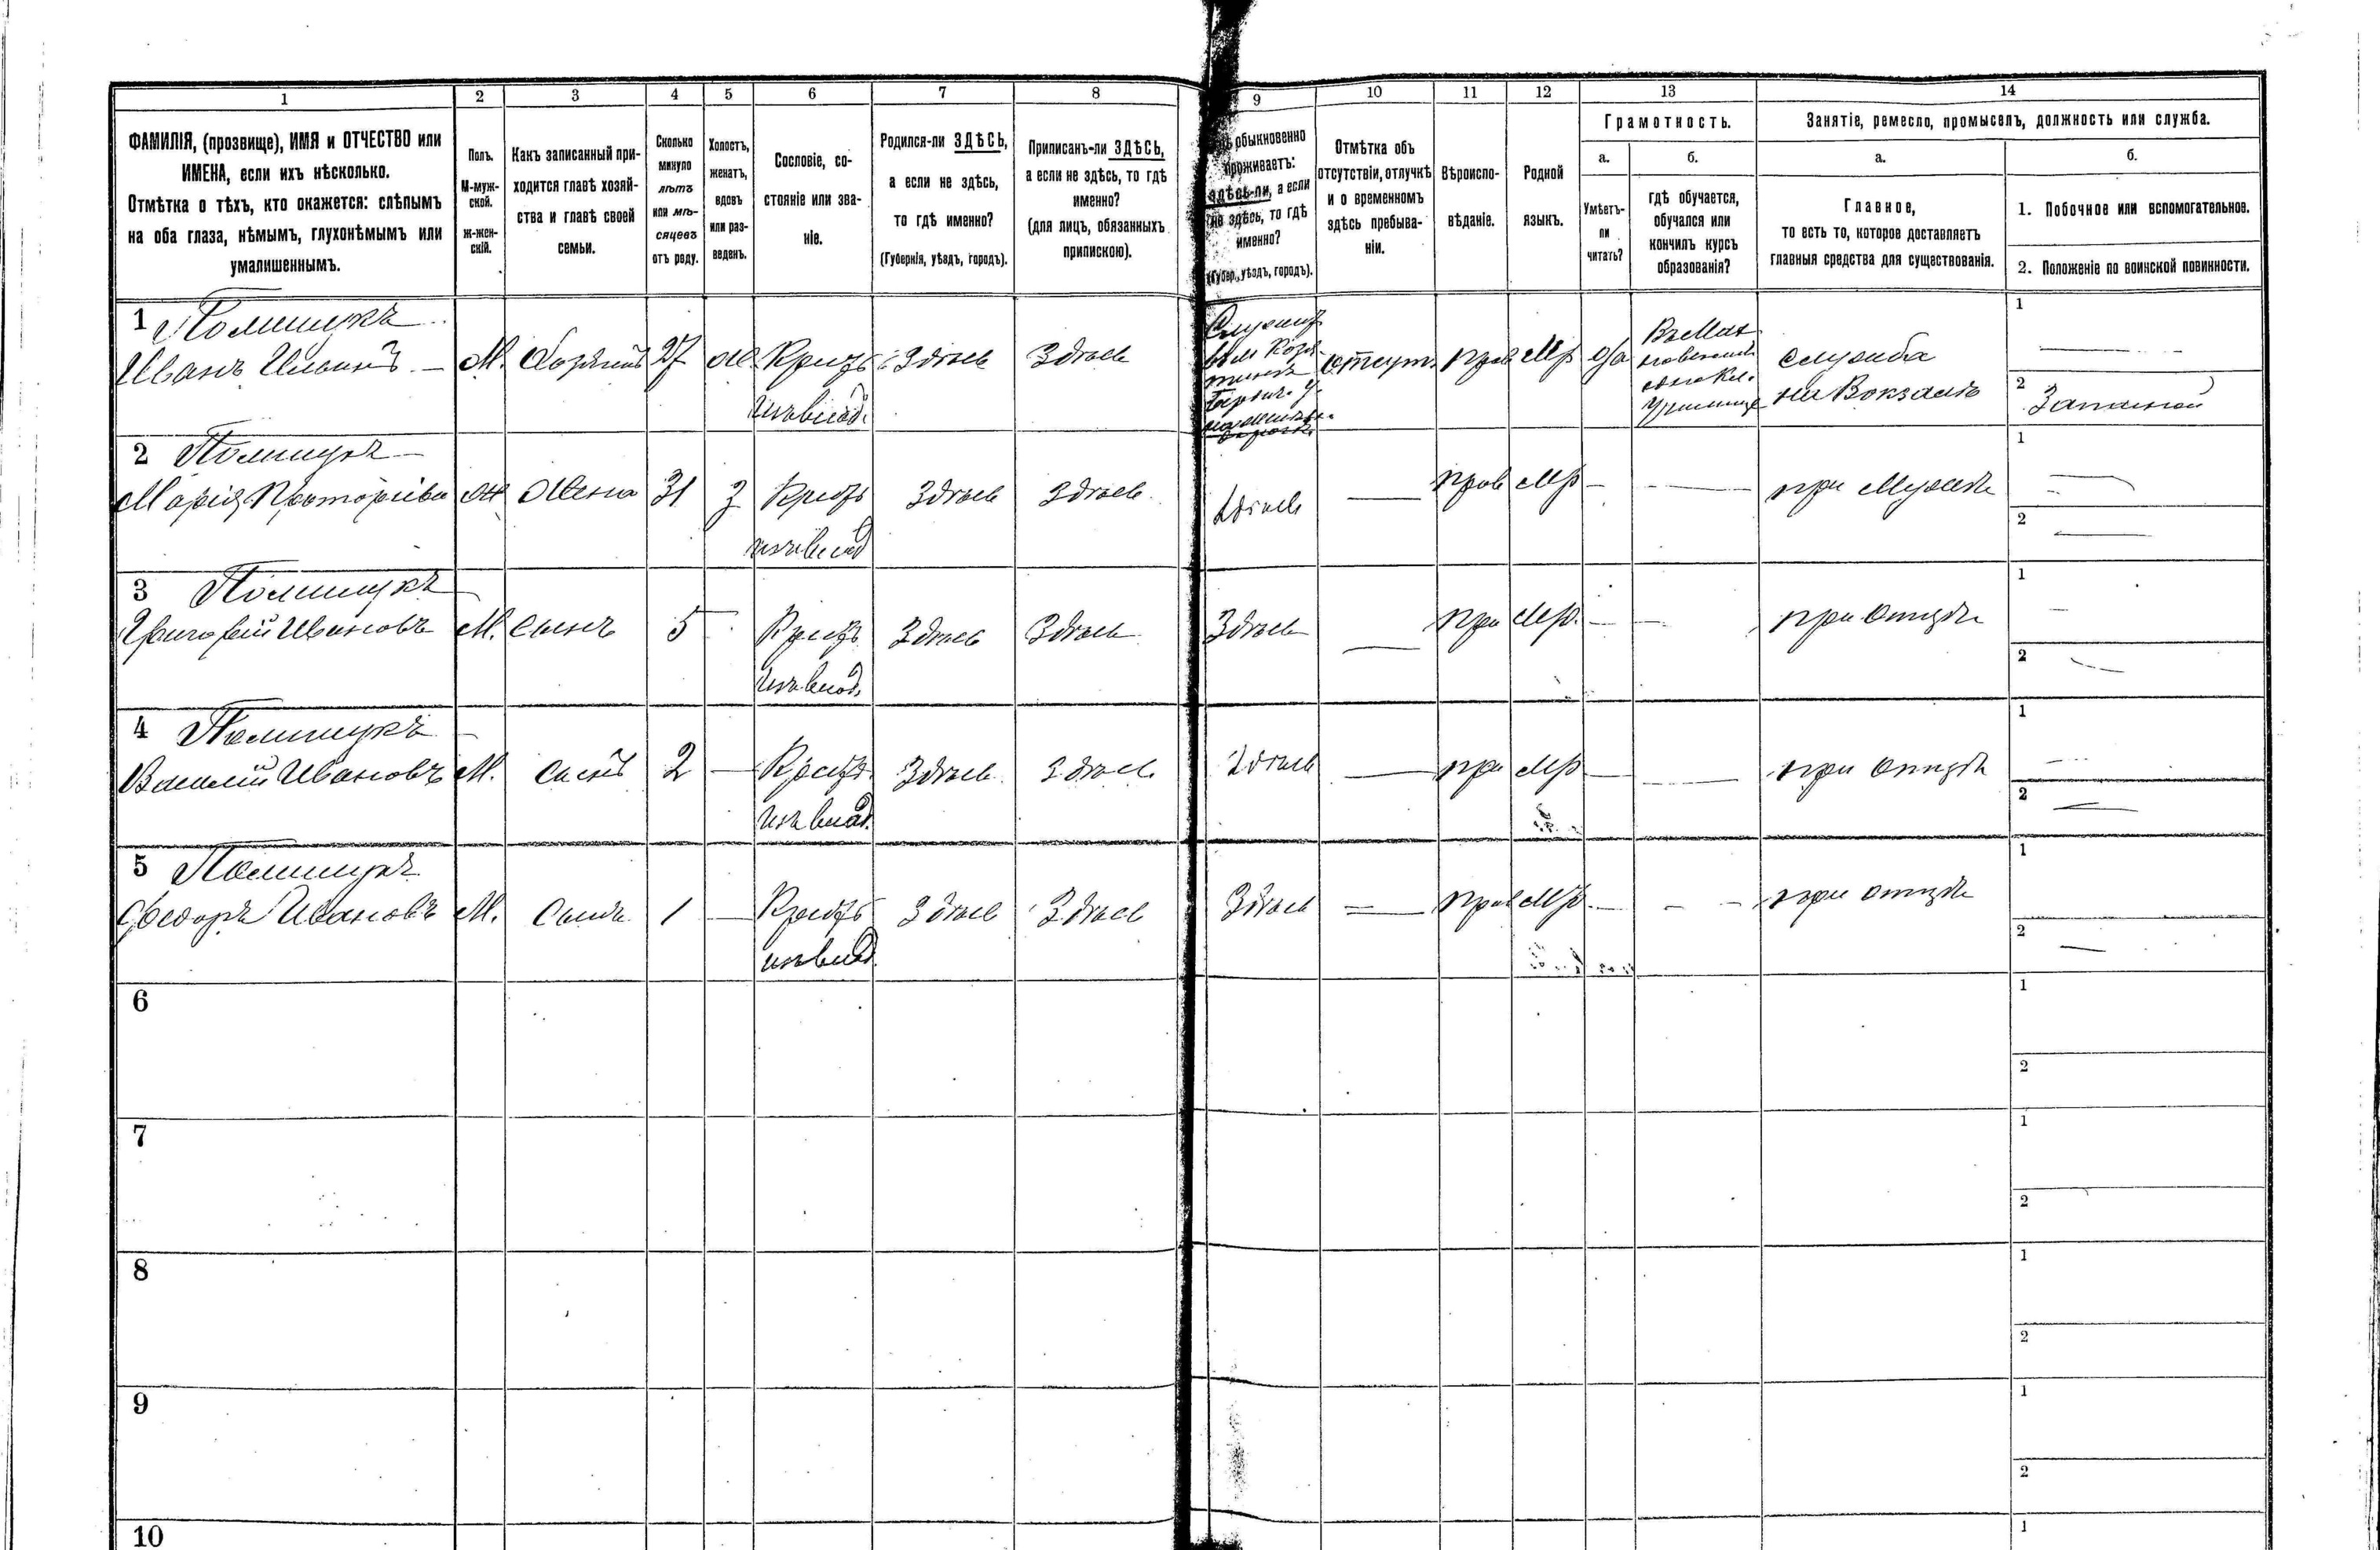 1
2
3
4
5
6
7
8
9
10
11
12
13
14
ФАМИЛІЯ, (прозвище), ИМЯ и ОТЧЕСТВО или
ИМЕНА, если ихъ нѣсколько.
Отмѣтка о тѣхъ, кто окажется: слѣпымъ
на оба глаза, нѣмымъ, глухонѣмымъ или
умалишеннымъ.
Полъ.
М-муж-
ской.
Ж-жен-
скій.
Какъ записанный при-
ходится главѣ хозяй-
ства и главѣ своей
семьи.
Сколько
минуло
лѣтъ
или мѣ-
сяцевъ
отъ роду.
Холостъ,
женатъ,
вдовъ
или раз-
веденъ.
Сословіе, со-
стояніе или зва-
ніе.
Родился-ли ЗДѢСЬ,
а если не здѣсь,
то гдѣ именно?
(Губернія, уѣздъ, городъ).
Приписанъ-ли ЗДѢСЬ,
а если не здѣсь, то гдѣ
именно?
(для лицъ, обязанныхъ
припискою).
обыкновенно
проживаетъ:
здѣсь-ли, а если
не здѣсь, то гдѣ
именно?
(Губер., уѣздъ, городъ).
Отмѣтка объ
отсутствіи, отлучкѣ
и о временномъ
здѣсь пребыва-
ніи.
Вѣроиспо-
вѣданіе.
Родной
языкъ.
Грамотность.
а.
Умѣетъ-
ли
читать?
б.
гдѣ обучается,
обучался или
кончилъ курсъ
образованія?
Занятіе, ремесло, промыселъ, должность или служба.
а.
Главное,
то есть то, которое доставляетъ
главныя средства для существованія.
б.
1. Побочное или вспомогательное.
2. Положеніе по воинской повинности.
1 Полищукъ
Иванъ Ильинъ М. Хозяинъ 27 Ж Крест Здѣсь Здѣсь
изъ влад.
отсут. прав Мр да
училище
служба
на Вокзалѣ
1
2 Запасной
2 Полищукъ
Марія Ж Жена 31 З Крест Здѣсь Здѣсь Здѣсь — прав Мр — — при Мужѣ
изъ влад
1
2
3 Полищукъ
Григорій Ивановъ М. Сынъ 5 Крест Здѣсь Здѣсь Здѣсь — пра Мр. — — при отцѣ
изъ влад.
1
2
4 Полищукъ
Василій Ивановъ М. Сынъ 2 — Крест Здѣсь Здѣсь Здѣсь — пра Мр — — при отцѣ
изъ влад.
1
2
5 Полищукъ
Федоръ Ивановъ М. Сынъ 1 — Крест Здѣсь Здѣсь Здѣсь — прав Мр — — при отцѣ
изъ влад.
1
2
6
1
2
7
1
2
8
1
2
9
1
2
10
1